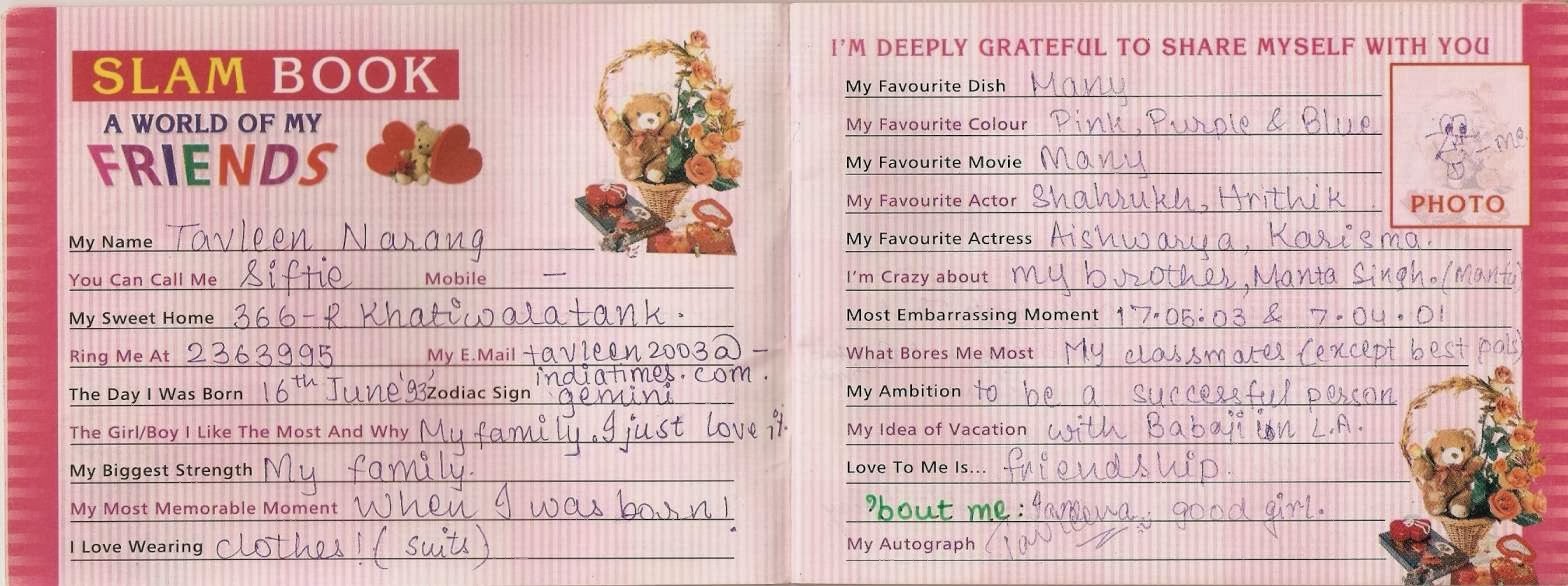 SLAM BOOK
A WORLD OF MY
FRIENDS
My Name Tavleen Narang
You Can Call Me Siftie Mobile —
My Sweet Home 366-R Khatiwala tank.
Ring Me At 2363995 My E.Mail tavleen2003@-
indiatimes.com.
The Day I Was Born 16th June'93' Zodiac Sign gemini
The Girl/Boy I Like The Most And Why My family. I just love it.
My Biggest Strength My family.
My Most Memorable Moment When I was born!
I Love Wearing clothes! (suits)
I'M DEEPLY GRATEFUL TO SHARE MYSELF WITH YOU
My Favourite Dish Many
My Favourite Colour Pink, Purple & Blue
My Favourite Movie Many
My Favourite Actor Shahrukh, Hrithik
- me
PHOTO
My Favourite Actress Aishwarya, Karisma.
I'm Crazy about my brother, Manta Singh. (Mantu)
Most Embarrassing Moment 17.05.03 & 7.04.01
What Bores Me Most My classmates (except best pals)
My Ambition to be a successful person
My Idea of Vacation with Babaji in L.A.
Love To Me Is... friendship.
'bout me: good girl.
My Autograph